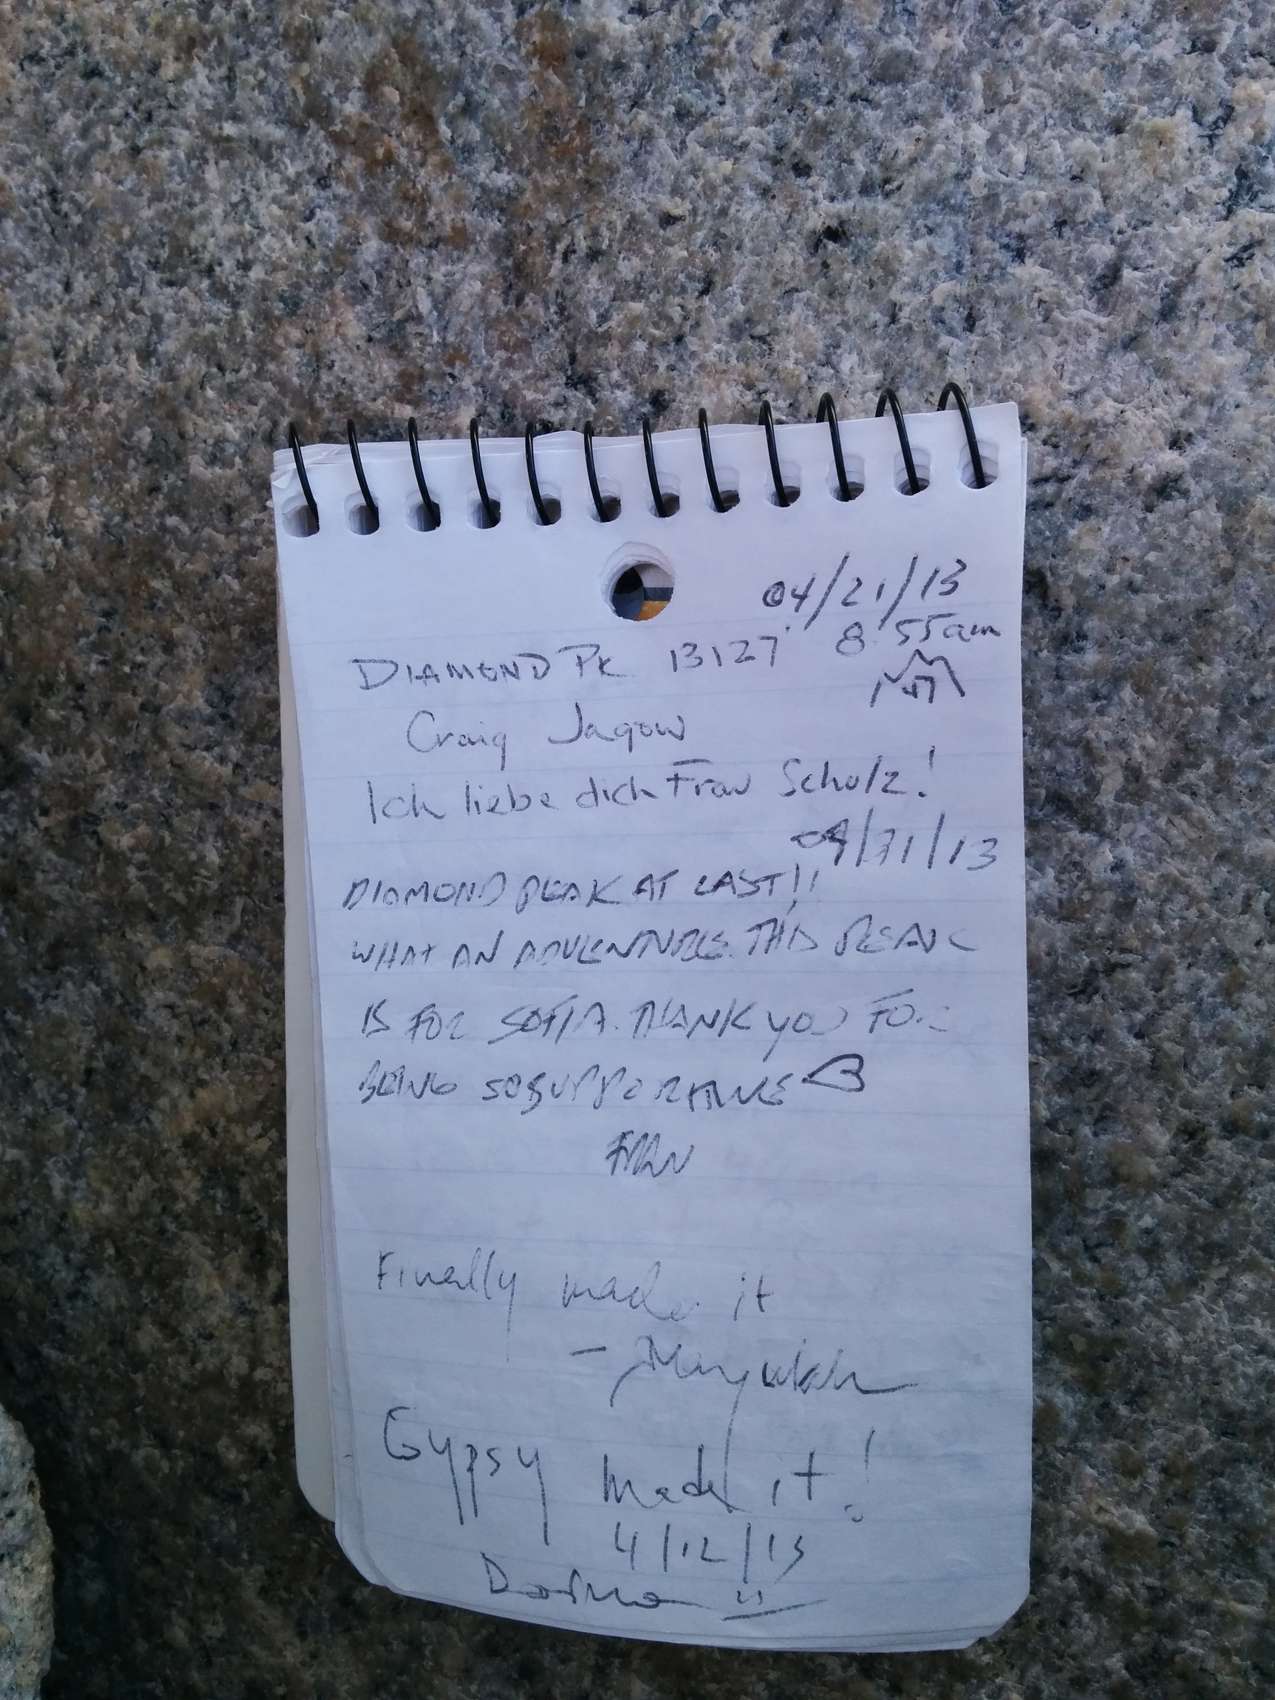 04/21/13
DIAMOND PK 13127' 8:55am
47
Craig Jagow
Ich liebe dich Frau Scholz!
04/31/13
DIAMOND PEAK AT LAST!!
WHAT AN ADVENTURE. THIS PEAK
IS FOR SOFIA. THANK YOU FOR
BEING SO SUPPORTIVE <3
FRAN
Finally made it
-
Gypsy made it!
4/12/13